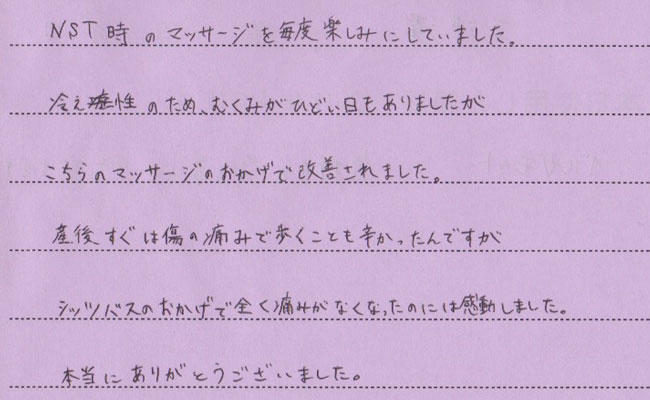 NST時のマッサージを毎度楽しみにしていました。
冷え性のため、むくみがひどい日もありましたが
こちらのマッサージのおかげで改善されました。
産後すぐは傷の痛みで歩くことも辛かったんですが
シッツバスのおかげで全く痛みがなくなったのには感動しました。
本当にありがとうございました。